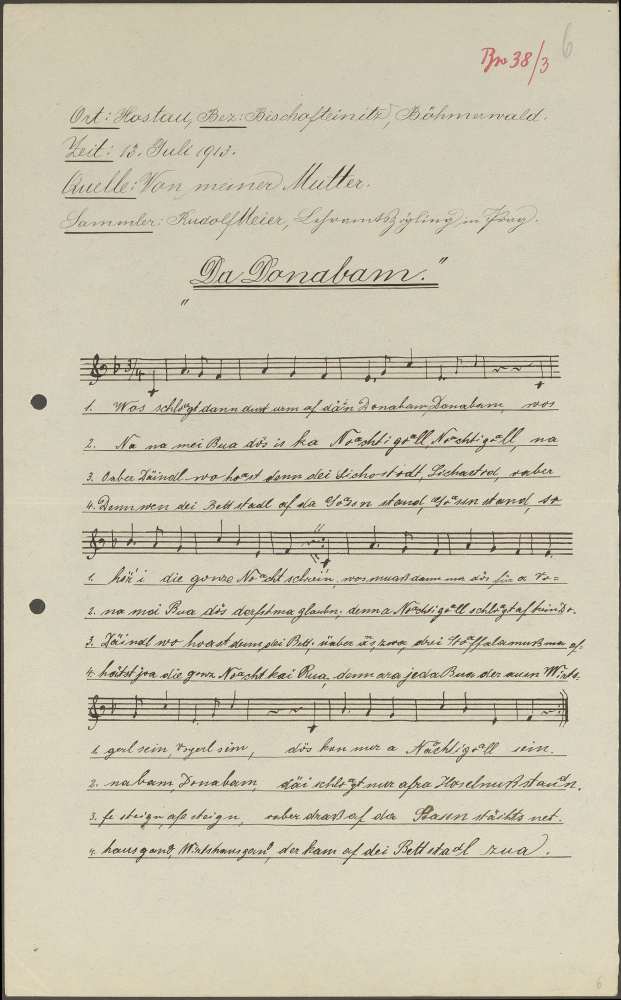 Br 38/3 6
Ort: Hostau, Bez: Bischofteinitz, Böhmerwald.
Zeit: 13. Juli 1913.
Quelle: Von meiner Mutter.
Sammler: Rudolf Meier, Lehramtszögling in Prag.
„Da Donabam."
3/4
1. Wos schlögt dann durt urm af dä'n Donabam, Donabam, wos
2. Na na mei Bua dös is ka Noachtigoall Noachtigoall, na
3. Oaber Däindl wo hoast denn dei Lichostodt, Lichastod, oaber
4. Denn wen dei Bettstadl af da Goassn stand, Goassn stand, so
1. hör' i die gonze Noacht schrein, wos muaß denn ner dös für a Vo=
2. na mei Bua dös derfst ma glaubn, denn a Noachtigoall schlögt af kein Do-
3. Däindl wo hoast denn dei Bett, üaber äs, zwoa, drei Stoffala muß ma af-
4. hättst joa die gonz Noacht kai Rua, denn ara jeda Bua der aum Wirts-
1. gerl sein, Vogerl sein, dös kon ner a Nachtigoall sein.
2. nabam, Donabam, däi schlögt ner afra Hoselnußstaudn.
3. fe steign, afe steign, oaber draß af da Goassn stäihts net.
4. hausgand, Wirtshausgand, der kam af dei Bettstadl zua.
6